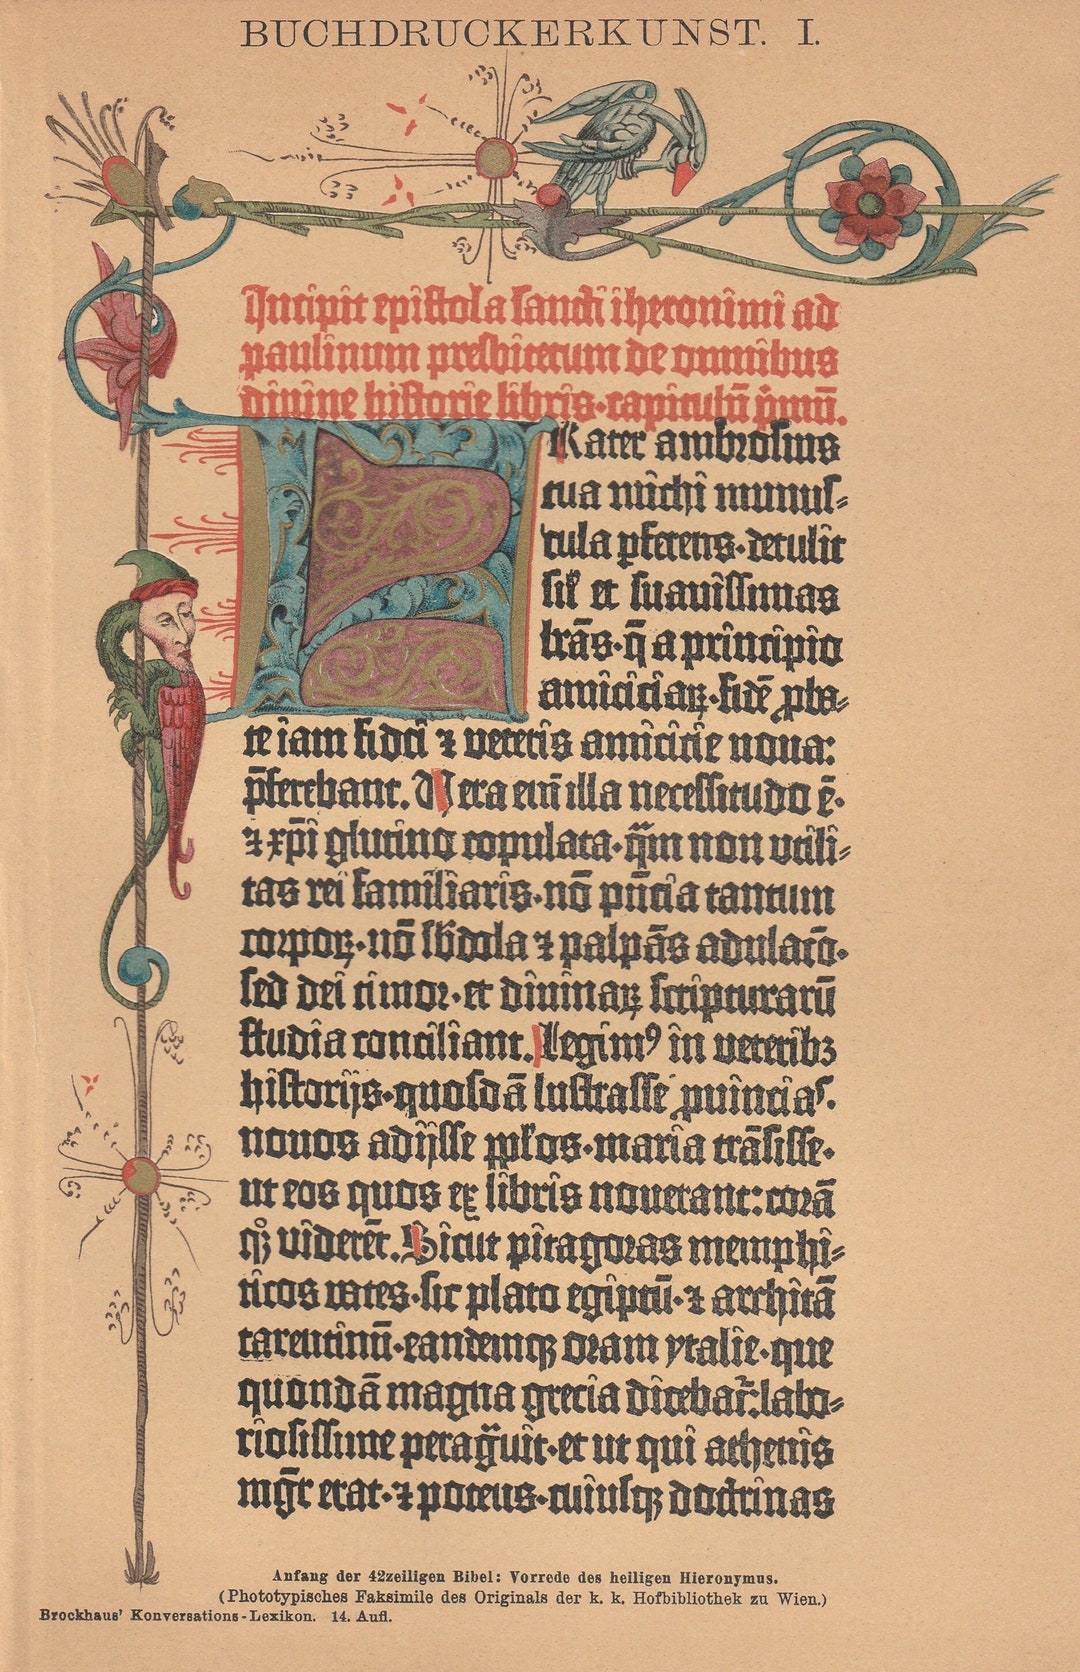 BUCHDRUCKERKUNST. I.
Incipit epistola sancti iheronimi ad
paulinum presbiterum de omnibus
divine historie libris·capitulū p̄mū.
FRater ambrosius
tua michi munus⸗
cula ꝑferens·detulit
sil̄ et suavissimas
lr̄as·q̄ a principio
amiciciaꝝ·fidē ꝓba⸗
te iam fidei ⁊ veteris amicicie noua:
p̄ferebant. Uera eni̅ illa necessitudo ē·
⁊ xp̄i glutino copulata·q̄m non utili⸗
tas rei familiaris·nō pn̄cia tantum
corpoꝝ·nō sb̄dola ⁊ palpās adulac̄o·
sed dei timor·et diuinaꝝ scripturarū
studia conciliant. Legimꝰ in veteribꝫ
historijs·quosdā lustrasse ꝓuincias·
nouos adijsse ppl̄os·maria trāsisse·
ut eos quos ex libris nouerant: corā
qꝫ viderēt. Sicut pitagoras memphi⸗
ticos vates·sic plato egiptū·⁊ architā
tarentinū·eandemqꝫ oram ytalie·que
quondā magna grecia dicebat̄: labo⸗
riosissime peragᷓuit·et ut qui athenis
mgr̄ erat·⁊ potens·cuiusqꝫ doctrinas
Anfang der 42zeiligen Bibel: Vorrede des heiligen Hieronymus.
(Phototypisches Faksimile des Originals der k. k. Hofbibliothek zu Wien.)
Brockhaus' Konversations-Lexikon. 14. Aufl.